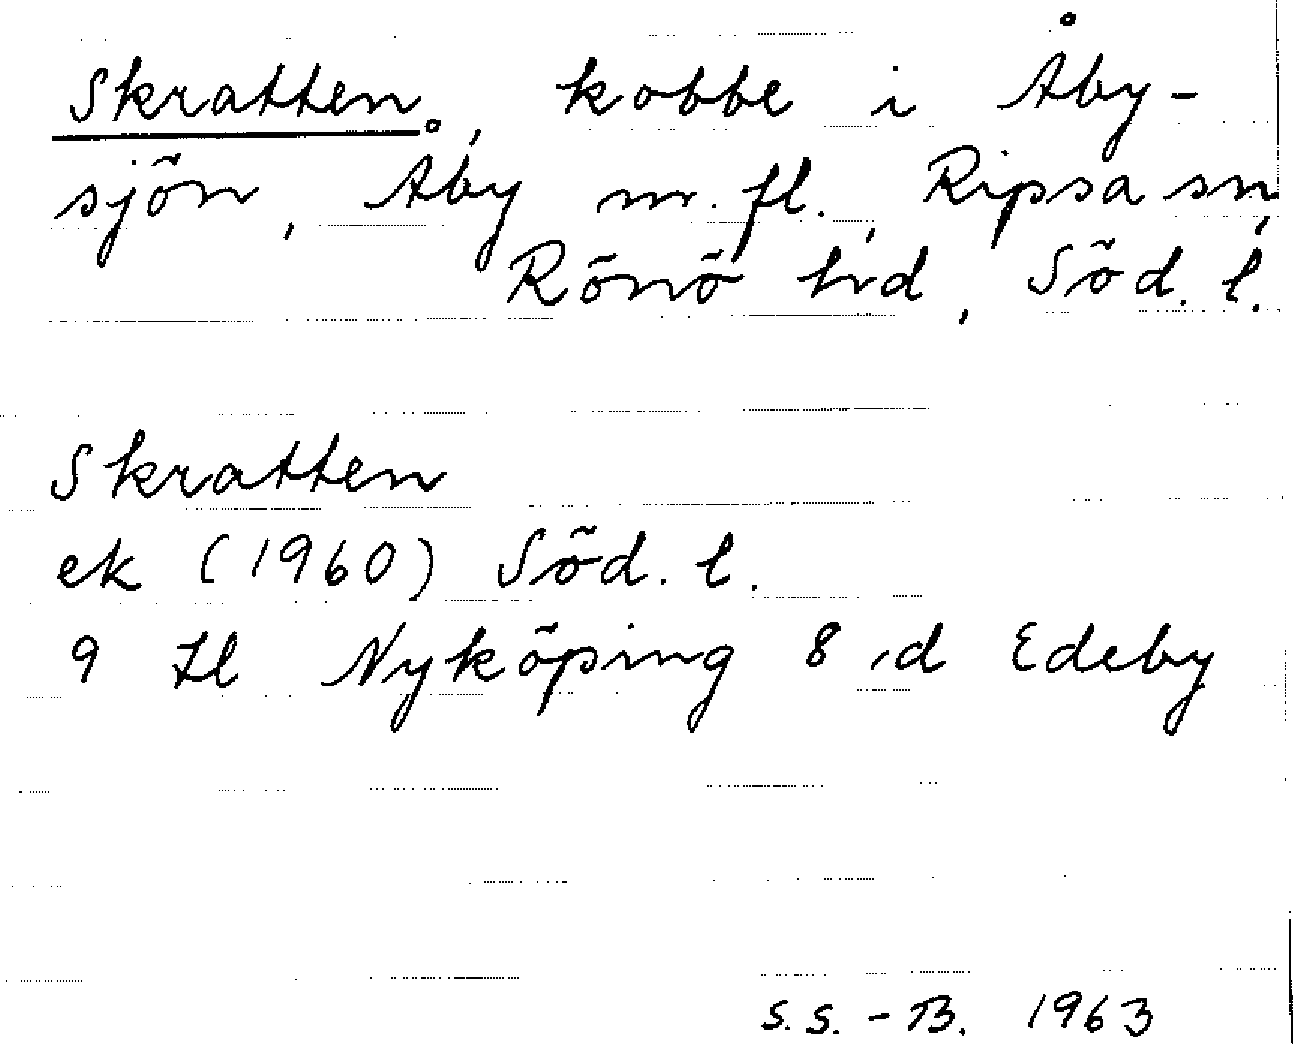 Skratten, kobbe i Åby-
sjön, Åby m. fl., Ripsa sn,
Rönö hd, Söd. l.
Skratten
ek (1960) Söd. l.
9 Il Nyköping 8 d Edeby
S.S.-B. 1963